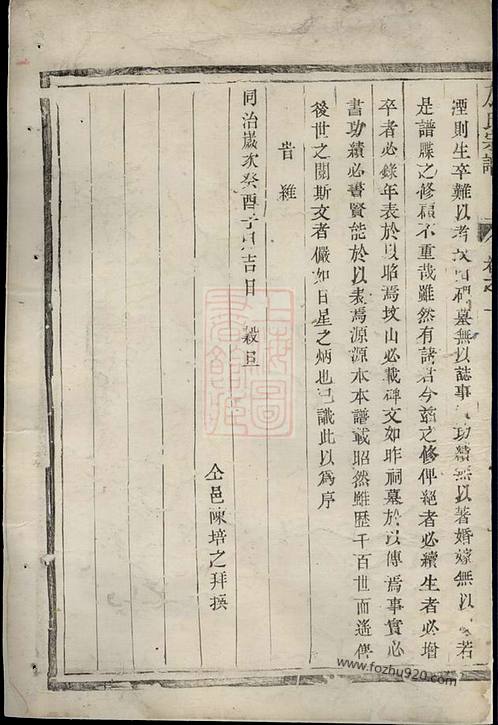 氏宗譜
湮則生卒難以考文碑墓無以誌事功績無以著婚嫁無以若
是譜牒之修顧不重哉雖然有諸君今茲之修俾絕者必續生者必增
卒者必錄年表於以昭焉墳山必載碑文如昨祠墓於以傳焉事實必
書功績必書賢能於以表焉源源本本譜載昭然雖歷千百世而遙傳
後世之閱斯文者儼如日星之炳也已讖此以為序
旹維
同治嵗次癸酉子月吉日 穀旦
仝邑陳培之拜撰
www.fozhu920.com